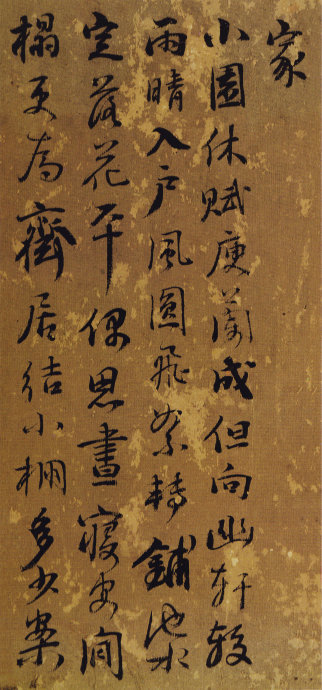 家
小園休賦庾蘭成但向幽軒較
雨晴入戶風圓飛絮轉鋪池水
定落花平偶思晝寢安閒
榻更為齋居結小棚多少案